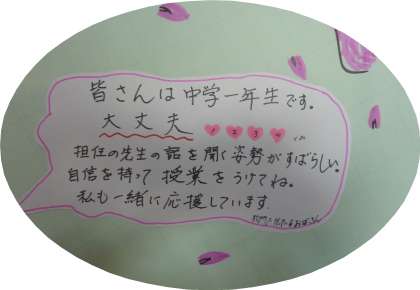 皆さんは中学一年生です。
大丈夫
担任の先生の話を聞く姿勢がすばらしい。
自信を持って授業をうけてね。
私も一緒に応援しています。